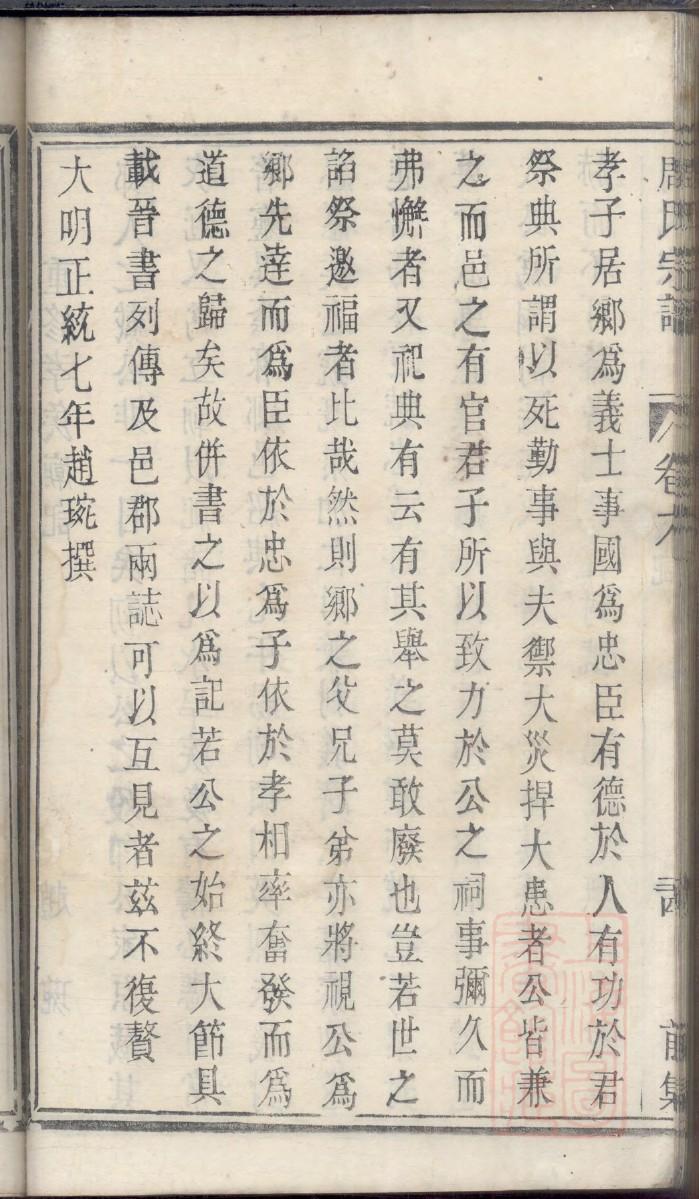 周氏宗譜 卷九 記 前集
孝子居鄉爲義士事國爲忠臣有德於人有功於君
祭典所謂以死勤事與夫禦大災捍大患者公皆兼
之而邑之有官君子所以致力於公之祠事彌久而
弗懈者又祀典有云有其舉之莫敢廢也豈若世之
諂祭邀福者比哉然則鄉之父兄子弟亦將視公爲
鄉先達而爲臣依於忠爲子依於孝相率奮發而爲
道德之歸矣故併書之以爲記若公之始終大節具
載晉書列傳及邑郡兩誌可以互見者茲不復贅
大明正統七年趙琬撰